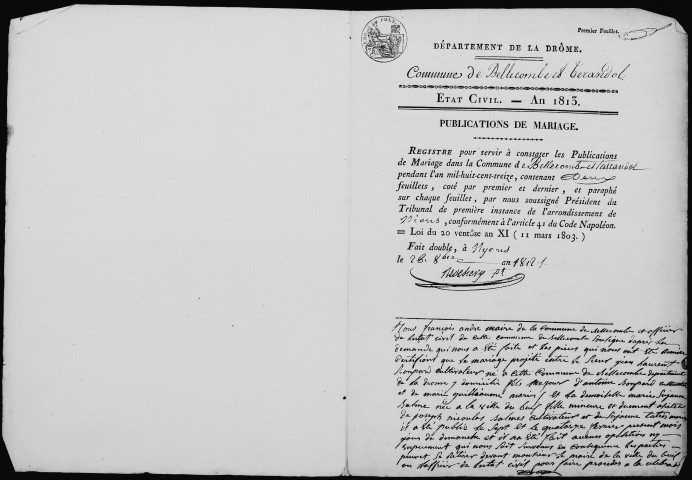 Premier Feuillet.
DÉPARTEMENT DE LA DRÔME.
Commune de Bellecombe et Tarandol
ETAT CIVIL. — AN 1813.
PUBLICATIONS DE MARIAGE.
REGISTRE pour servir à constater les Publications
de Mariage dans la Commune de Bellecombe et Tarandol
pendant l'an mil-huit-cent-treize, contenant Deux
feuillets, coté par premier et dernier, et paraphé
sur chaque feuillet, par nous soussigné Président du
Tribunal de première instance de l'arrondissement de
Nions, conformément à l'article 41 du Code Napoléon.
= Loi du 20 ventôse an XI ( 11 mars 1803. )
Fait double, à Nyons
le 26 8bre an 1812.
Nous françois andre maire de la Commune de Bellecombe et officier
de l'etat civil de cette commune de Bellecombe Soussigne d'apres la
demande qui nous a été faite et les pieces qui nous ont été
Certifions que le mariage projeté entre le Sieur jean Laurent
cultivateur né a cette Commune de Bellecombe departement
de la Drome y domicilié fils majeur d'antoine
et de marie guillaume marin / et la demoiselle marie Suzanne
née a la ville du buis fille mineure et
de joseph nicolas cultivateur et de Suzanne
il a été publié le Sept et le quatorze fevrier present mois
jours de dimanche et il n'a été fait aucune opposition ny
empechement qui nous soit Survenu en Consequence les parties
peuvent se retirer devant monsieur le maire de la ville du buis
ou l'officier de l'etat civil pour faire proceder a la celebration